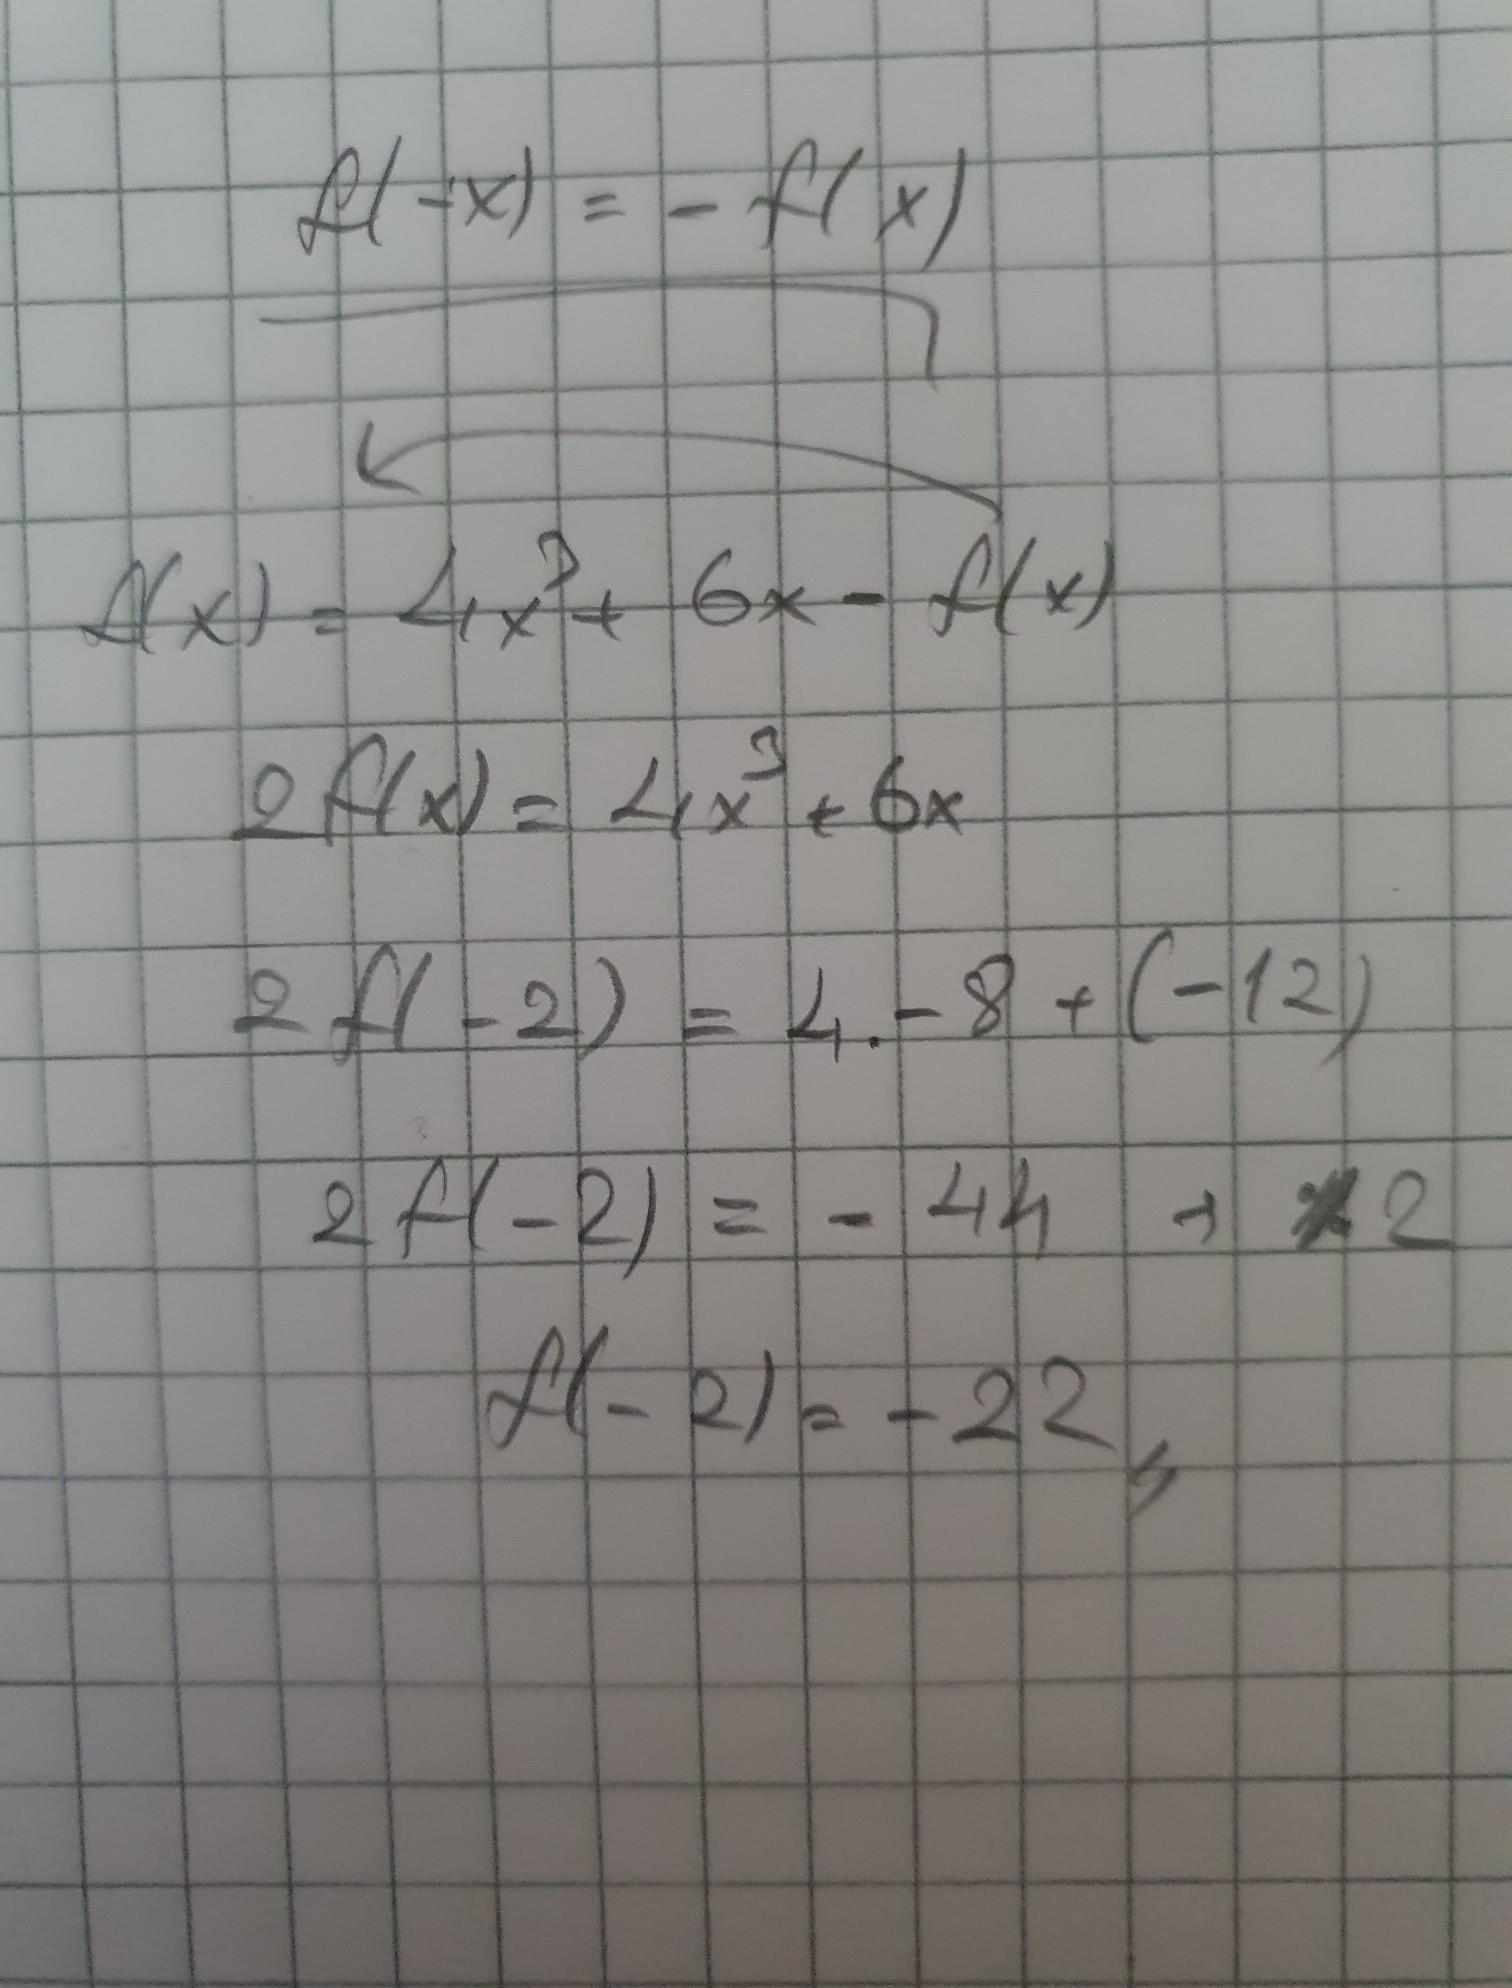 f(-x) = - f(x)
f(x) = 4x³ + 6x - f(x)
2f(x) = 4x³ + 6x
2f(-2) = 4.-8 + (-12)
2f(-2) = -44 → 2
f(-2) = -22,,